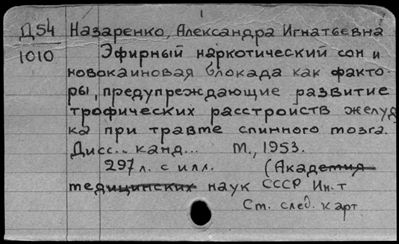 Д54 Назаренко, Александра Игнатьевна
1010 Эфирный наркотический сон и
новокаиновая блокада как факто-
ры, предупреждающие развитие
трофических расстройств желуд
ка при травме спинного мозга.
Дисс.. канд... М., 1953.
297 л. с илл. (Академия
медицинских наук СССР Ин-т
См. след. карт